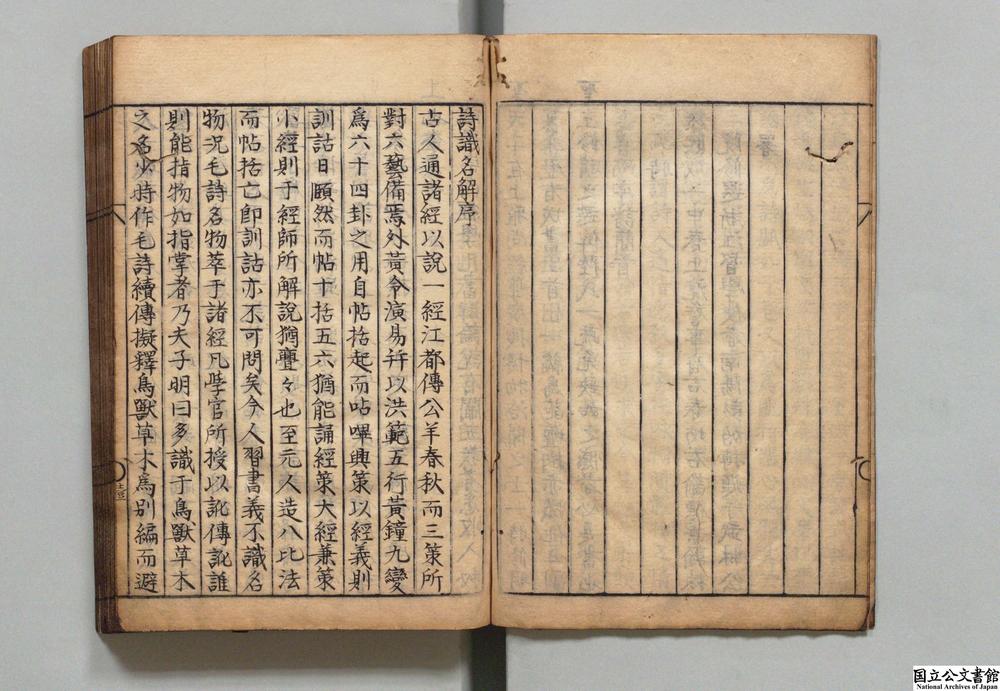 詩識名解序
古人通諸經以說一經江都傳公羊春秋而三策所
對六藝備焉外黃令演易並以洪範五行黃鐘九變
爲六十四卦之用自帖括起而呫嗶興策以經義則
訓詁日頤然而帖十括五六猶能誦經策大經兼策
小經則于經師所解說猶亹々也至元人造八比法
而帖括亡卽訓詁亦不可問矣今人習書義不識名
物况毛詩名物萃于諸經凡學官所授以訛傳訛誰
則能指物如指掌者乃夫子明曰多識于鳥獸草木
之名少時作毛詩續傳擬釋鳥獸草木爲別編而避
国立公文書館
National Archives of Japan